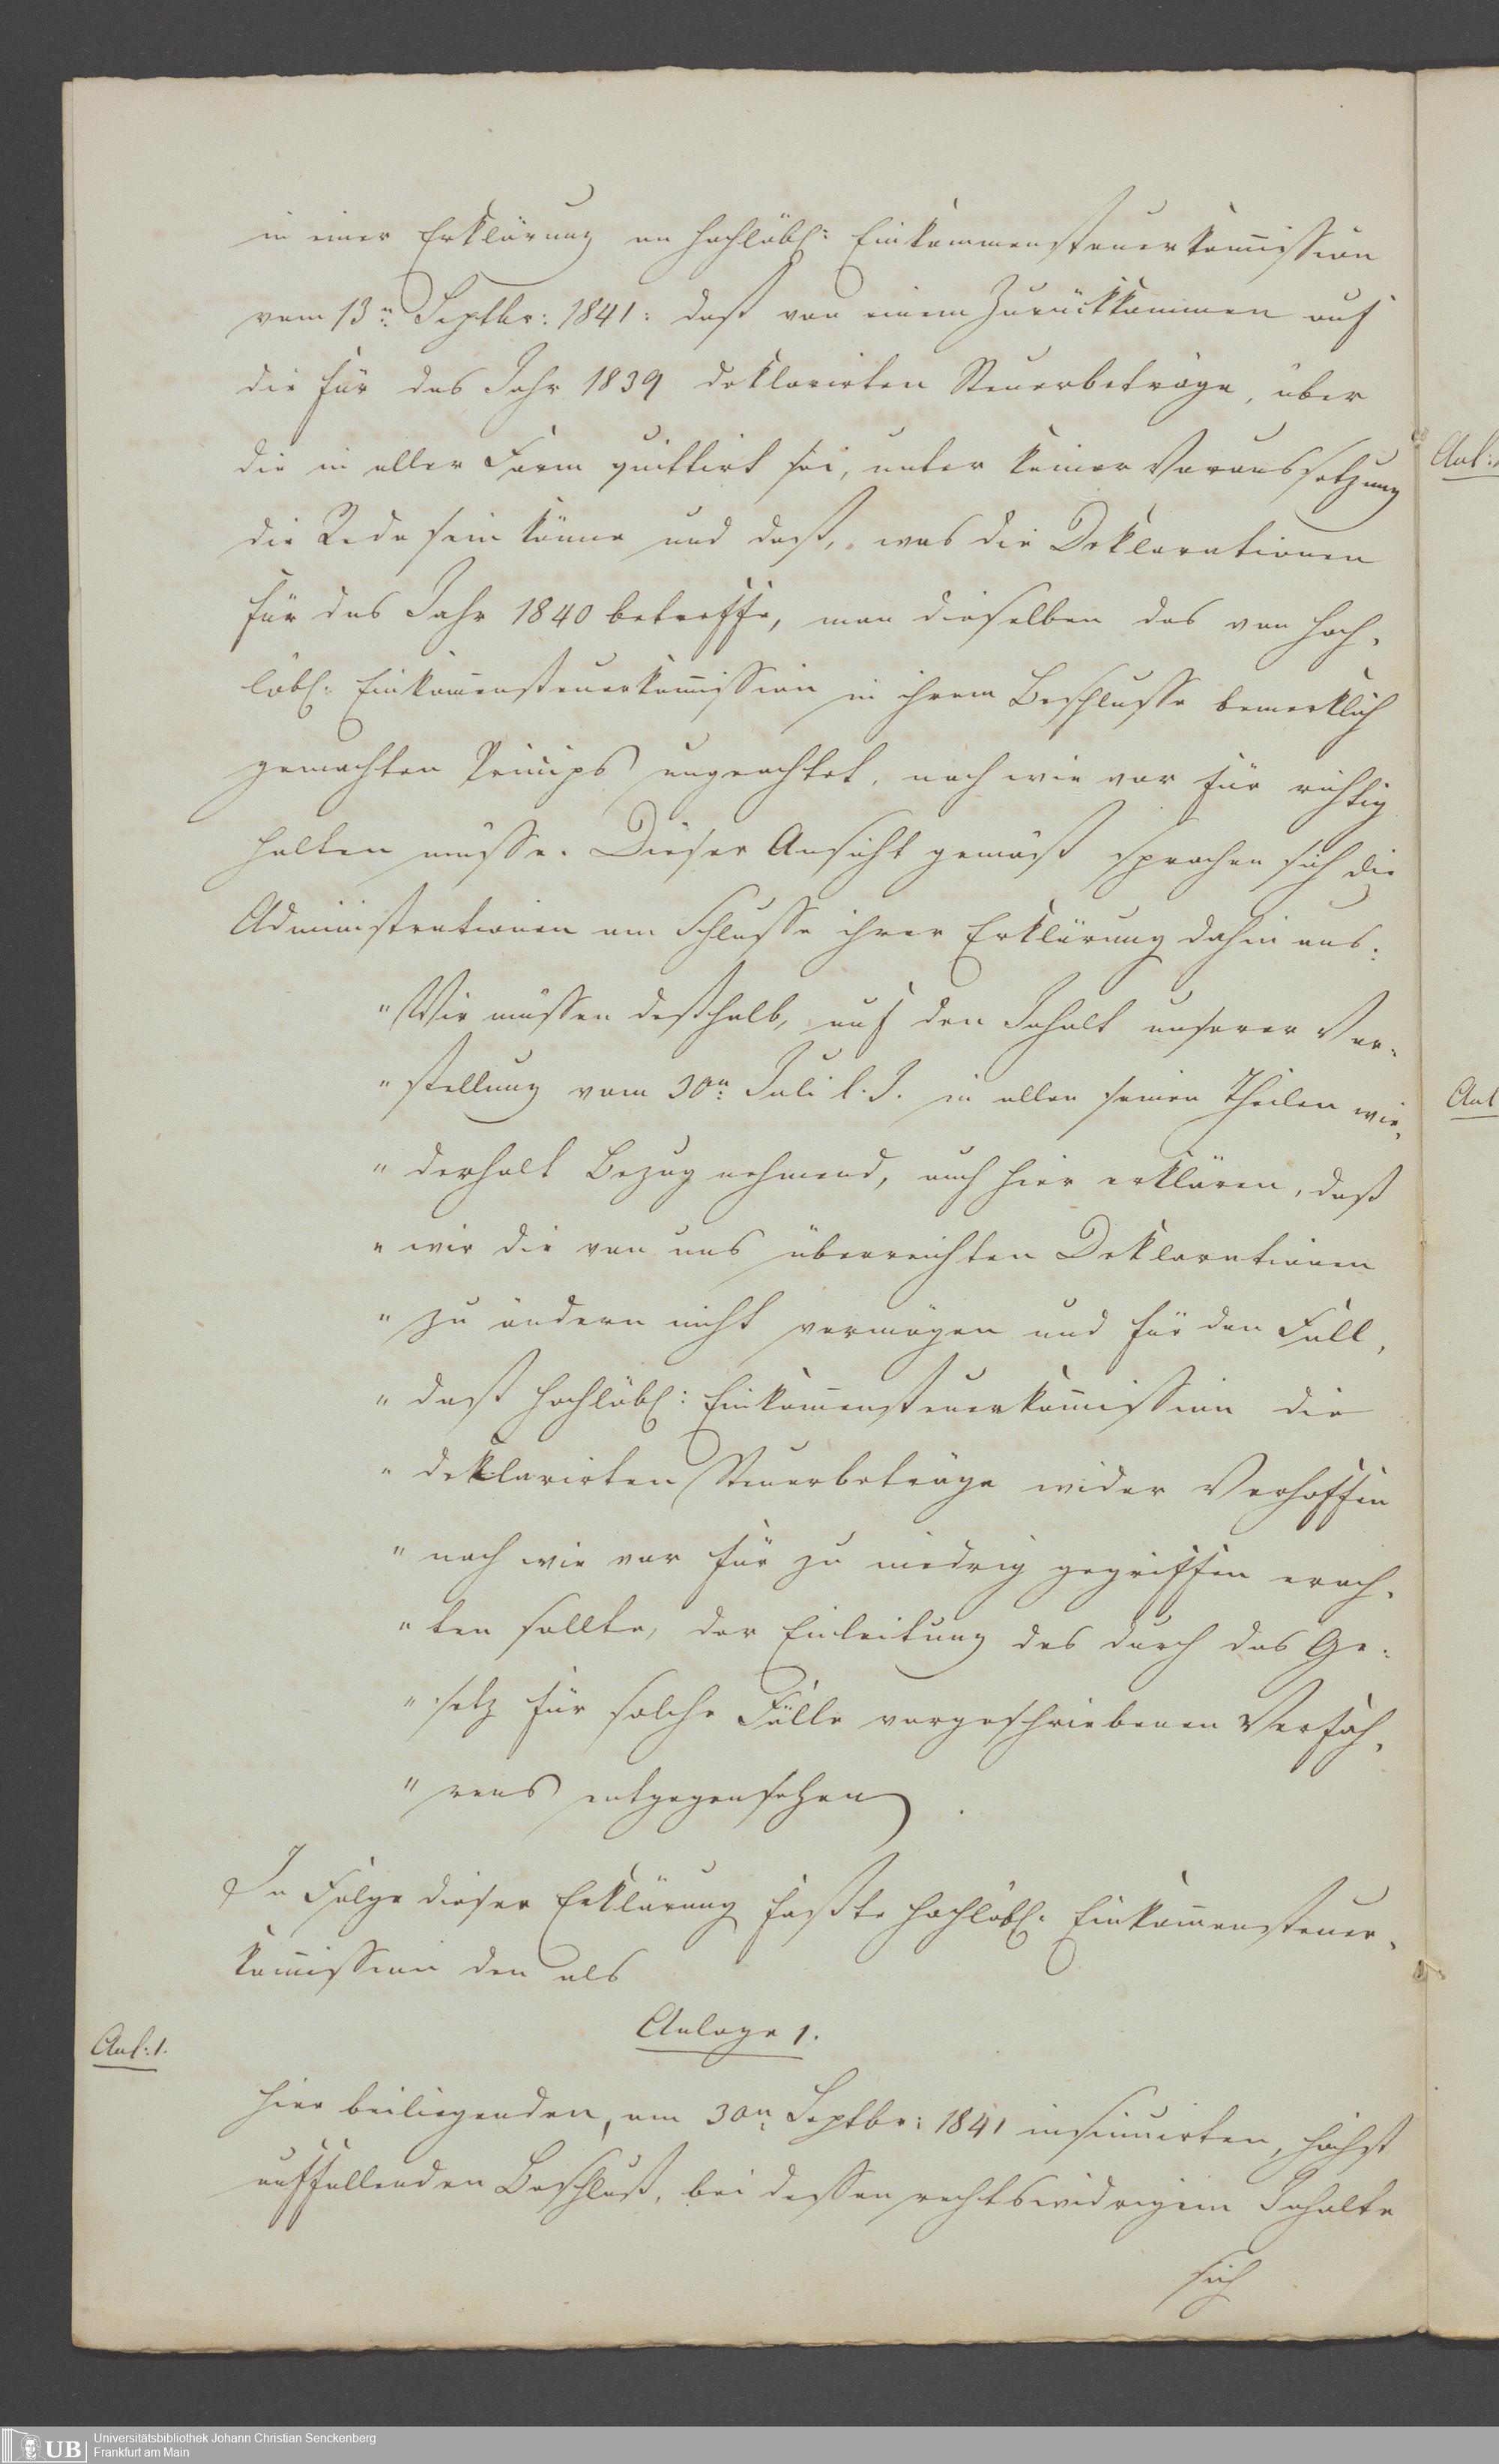 in einer Erklärung an hochlöbl: Einkommensteuerkom̅ission
vom 13n: Septbr: 1841: daß von einem Zurückkommen auf
die für das Jahr 1839 deklarirten Steuerbeträge, über
die in aller Form quittirt sei, unter keiner Voraussetzung
die Rede sein könne und daß, was die Deklarationen
für das Jahr 1840 betreffe, man dieselben des von hoch-
löbl: Einkom̅ensteuerkom̅ission in ihrem Beschlusse bemerklich
gemachten Princips ungeachtet, nach wie vor für richtig
halten müsse. Dieser Ansicht gemäß sprachen sich die
Administrationen am Schlusse ihrer Erklärung dahin aus:
"Wir müssen deßhalb, auf den Inhalt unserer Vor-
"stellung vom 30n: Juli l. J. in allen seinen Theilen wie-
"derholt Bezug nehmend, auch hier erklären, daß
"wir die von uns überreichten Deklarationen
"zu ändern nicht vermögen und für den Fall,
"daß hochlöbl: Einkom̅ensteuerkom̅ission die
"deklarirten Steuerbeträge wider Verhoffen
"nach wie vor für zu niedrig gegriffen erach-
"ten sollte, der Einleitung des durch das Ge-
"setz für solche Fälle vorgeschriebenen Verfah-
"rens entgegensehen.
In Folge dieser Erklärung faßte hochlöbl: Einkom̅ensteuer-
kom̅ission den als
Anlage 1.
Anl: 1.
hier beiliegenden, am 30n: Septbr: 1841 insinuirten, höchst
auffallenden Beschluß, bei dessen rechtswidrigem Inhalte
sich
Anl:
Anl
UB
Universitätsbibliothek Johann Christian Senckenberg
Frankfurt am Main